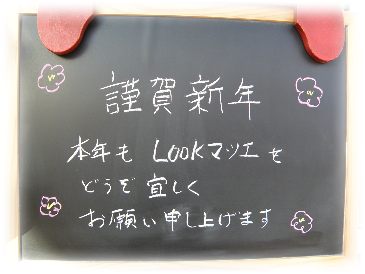 謹賀新年
本年も LOOKマツエを
どうぞ 宜しく
お願い申し上げます